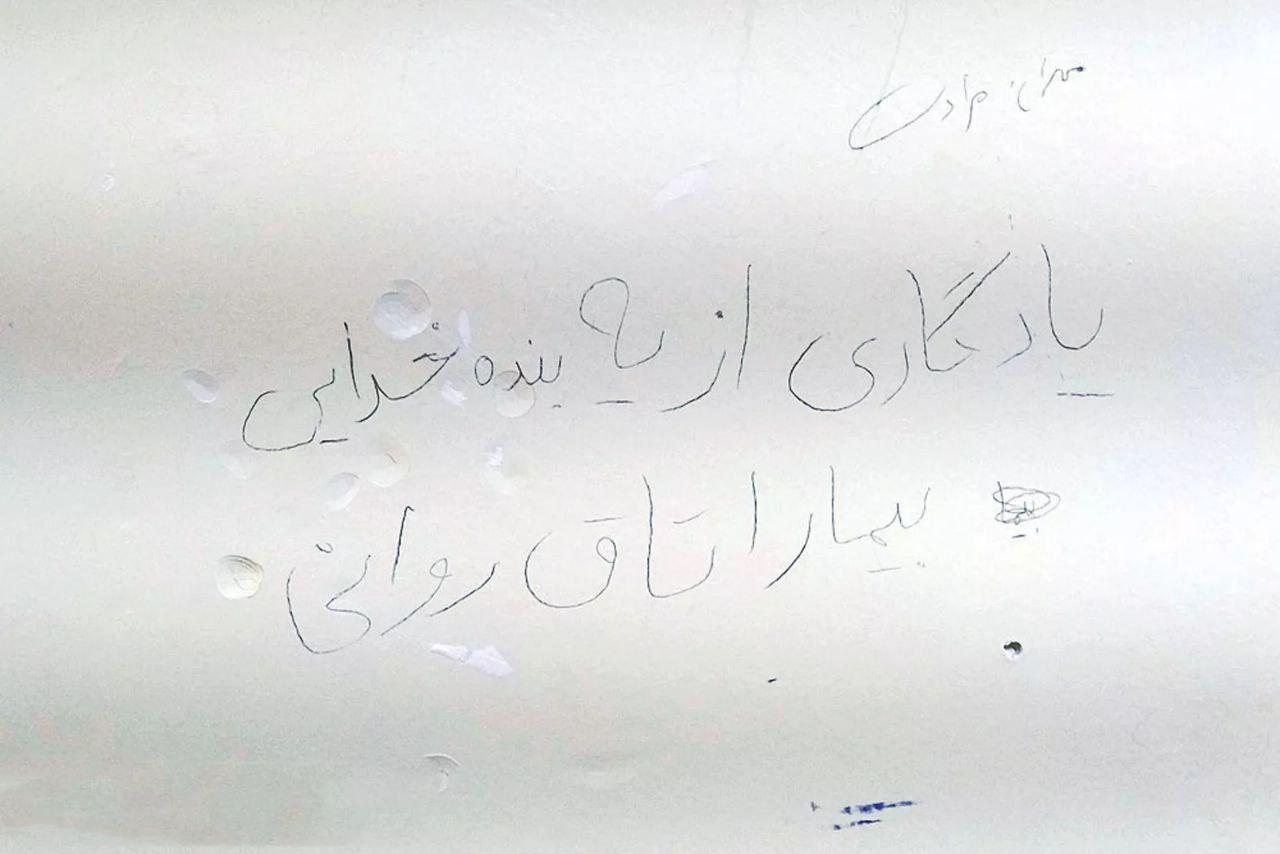 یادگاری از یه بنده خدایی
بیمار اتاق روانی